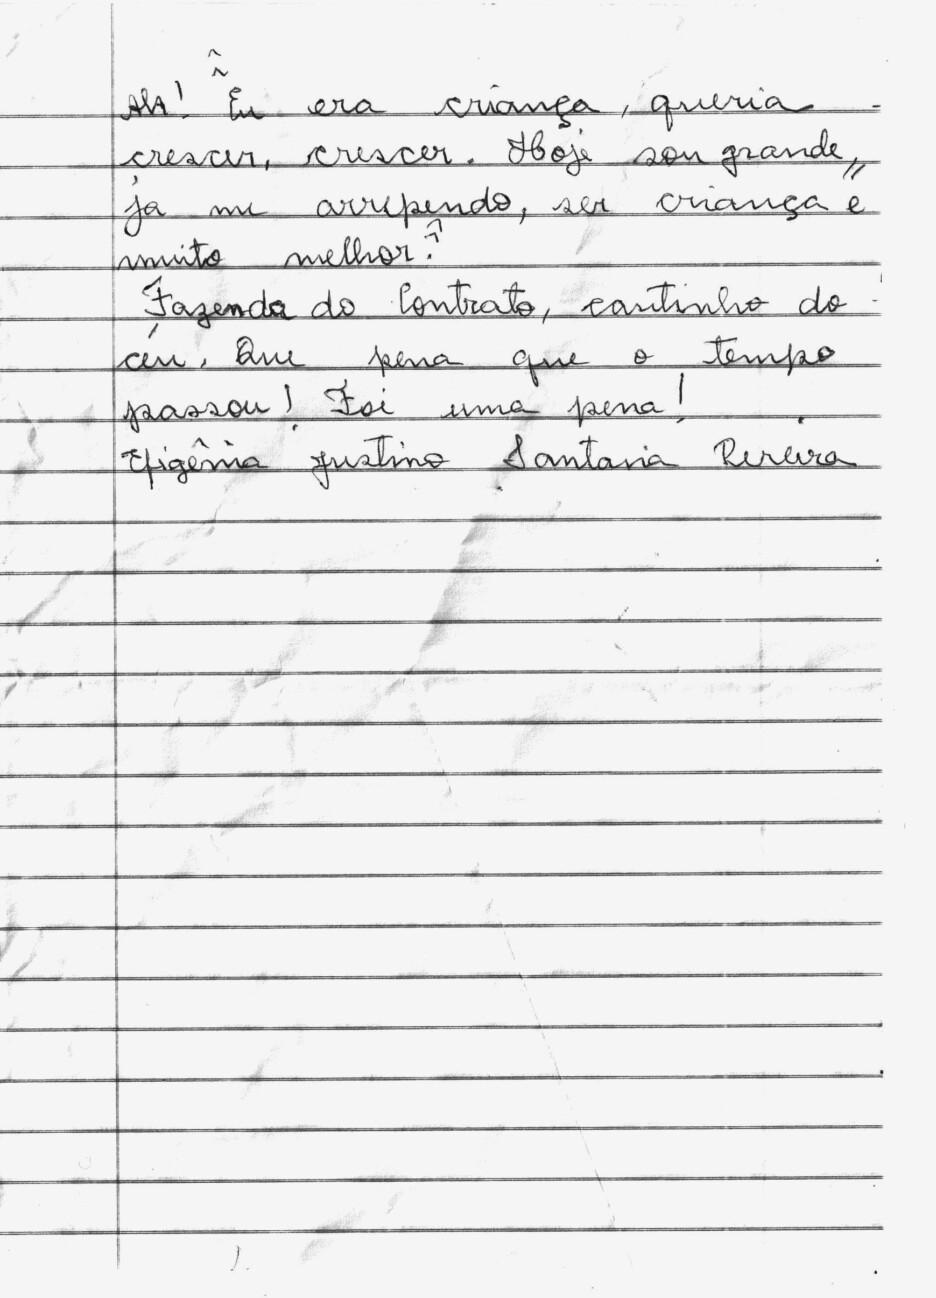 Ah! "Eu era criança, queria
crescer, crescer. Hoje sou grande,
já me arrependo, ser criança é
muito melhor."
Fazenda do Contrato, cantinho do
céu. Que pena que o tempo
passou! Foi uma pena!
Efigênia Justino Santana Pereira